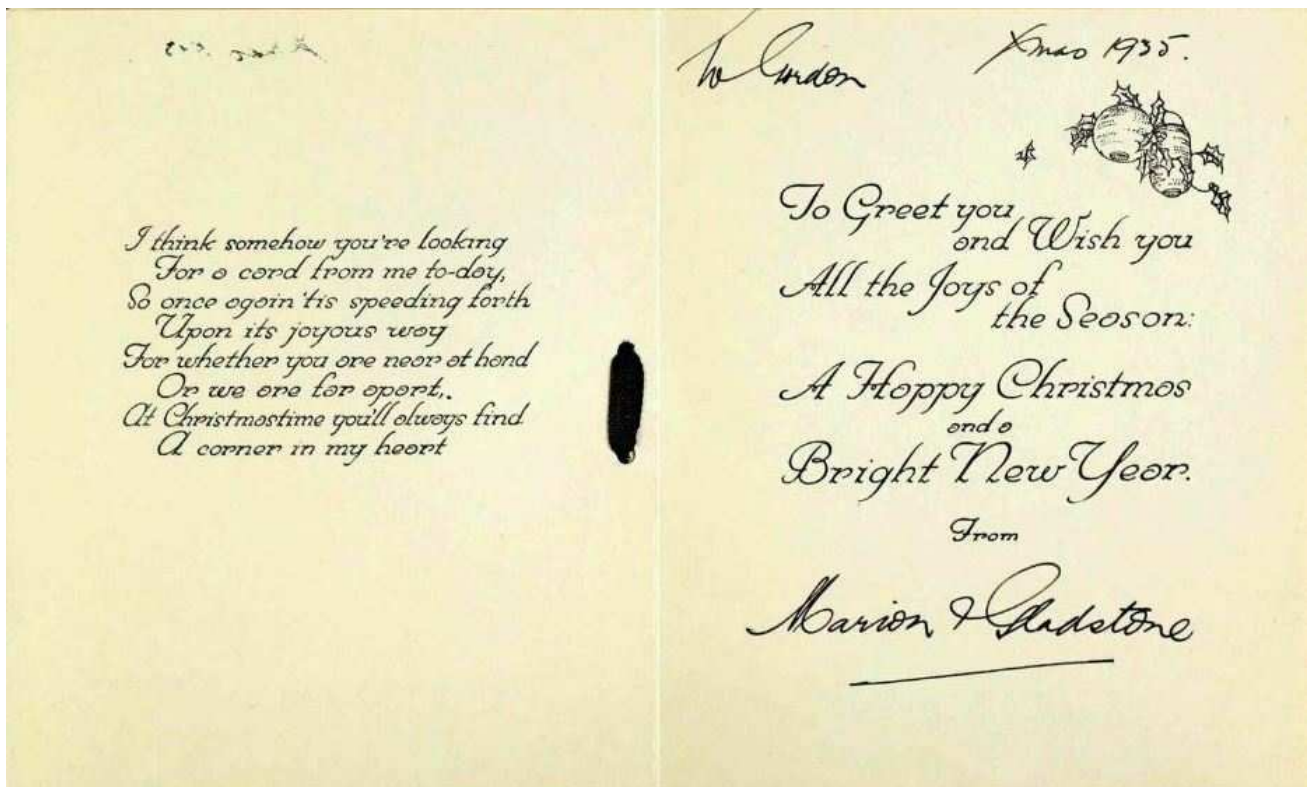 I think somehow you're looking
For a card from me to-day,
So once again 'tis speeding forth
Upon its joyous way
For whether you are near at hand
Or we are far apart,.
At Christmastime you'll always find
A corner in my heart
To Gordon
Xmas 1935.
To Greet you
and Wish you
All the Joys of
the Season:
A Happy Christmas
and a
Bright New Year.
From
Marion & Gladstone